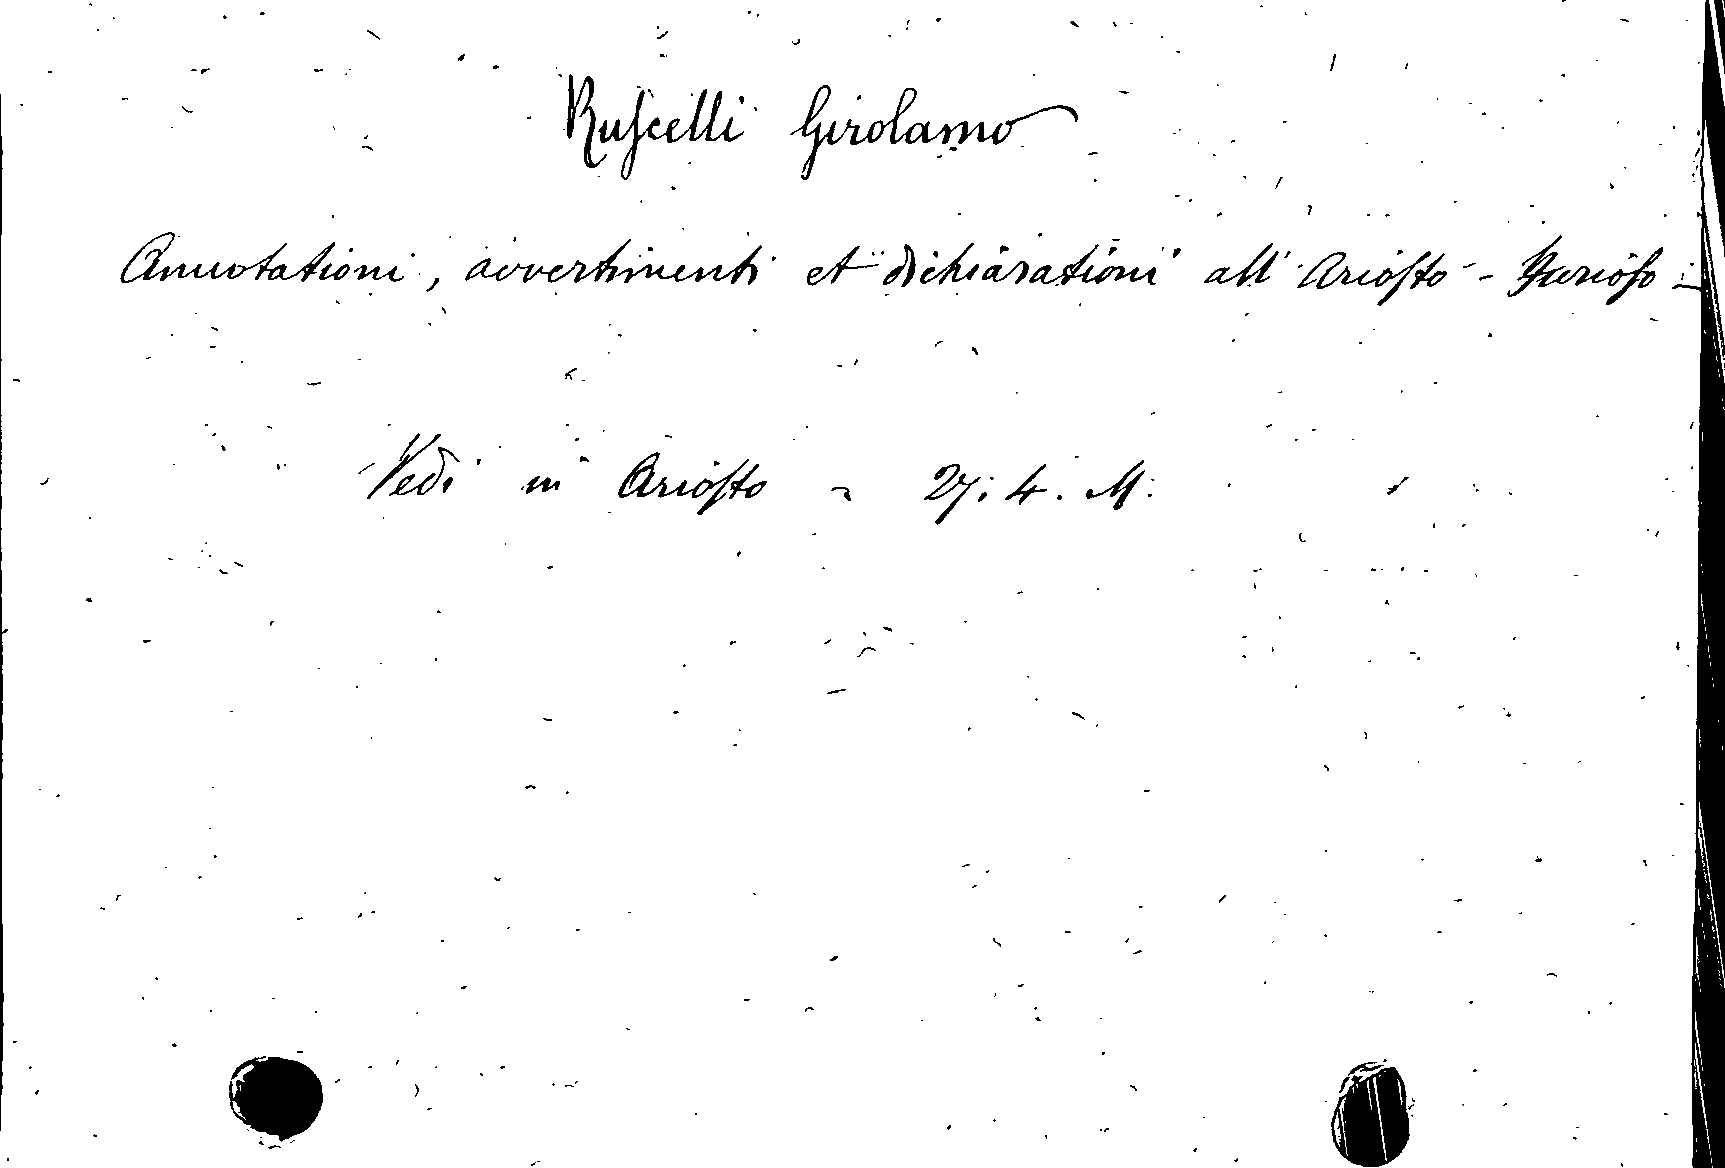 Ruscelli Girolamo
Annotationi, avvertimenti et dichiarationi all' Ariosto - Furioso -
Vedi in Ariosto - 27. 4. M.